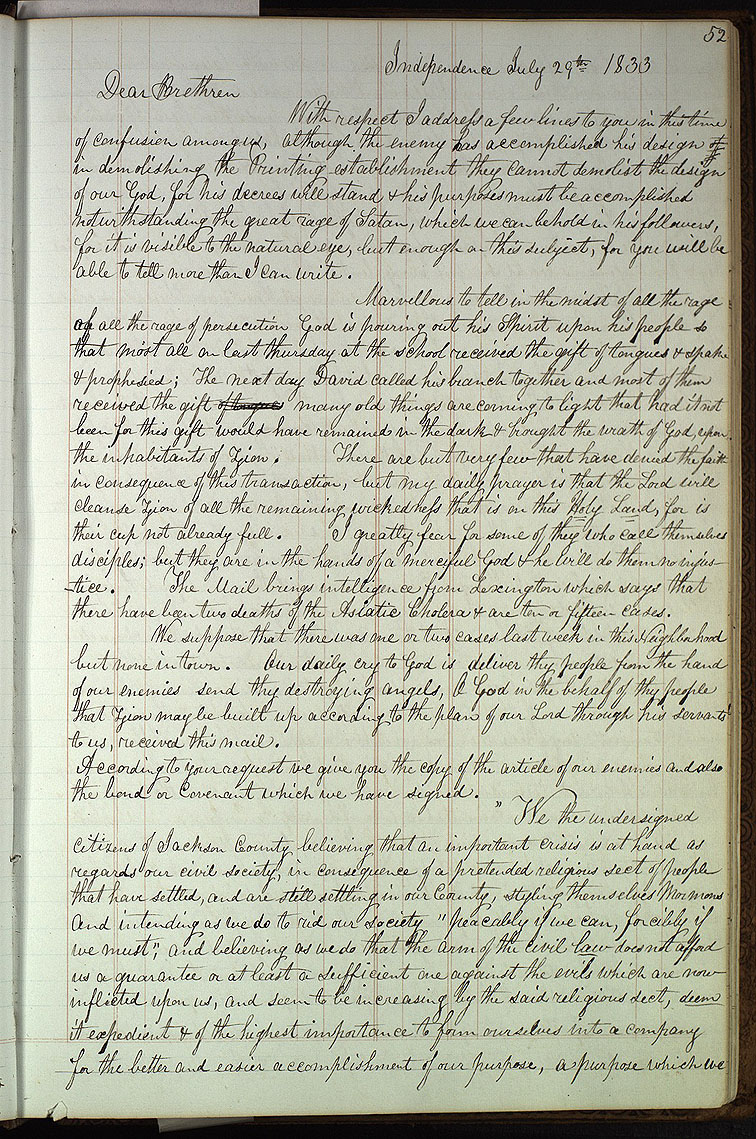 52
Independence July 29th 1833
Dear Brethren
With respect I address a few lines to you in this time
of confusion among us, although the enemy has accomplished his design of
in demolishing the Printing establishment they cannot demolist the design
of our God, for his decrees will stand & his purposes must be accomplished
notwithstanding the great rage of Satan, which we can behold in his followers,
for it is visible to the natural eye, but enough on this subject, for you will be
able to tell more than I can write.
Marvellous to tell in the midst of all the rage
of all the rage of persecution God is pouring out his Spirit upon his people so
that most all on last thursday at the school received the gift of tongues & spake
& prophesied; The next day David called his branch together and most of them
received the gift of tongues many old things are coming to light that had it not
been for this gift would have remained in the dark & brought the wrath of God upon
the inhabitants of Zion. There are but very few that have denied the faith
in consequence of this transaction, but my daily prayer is that the Lord will
cleanse Zion of all the remaining wickedness that is on this Holy Land, for is
their cup not already full. I greatly fear for some of they who call themselves
disciples; but they are in the hands of a merciful God & he will do them no injus-
tice. The Mail brings intelligence from Lexington which says that
there have been two deaths of the Asiatic Cholera & are ten or fifteen cases.
We suppose that there was one or two cases last week in this Neighborhood
but none in town. Our daily cry to God is deliver thy people from the hand
of our enemies send thy destroying angels, O God in the behalf of thy people
that Zion may be built up according to the plan of our Lord through his servants
to us, received this mail.
According to your request we give you the copy of the article of our enemies and also
the bond or Covenant which we have signed.
" We the undersigned
citizens of Jackson County believing that an important crisis is at hand as
regards our civil society, in consequence of a pretended religious sect of people
that have settled, and are still settling in our County, styling themselves Mormons
and intending as we do to rid our society "peacably if we can, forcibly if
we must", and believing as we do that the arm of the civil law does not afford
us a guarantee or at least a sufficient one against the evils which are now
inflicted upon us, and seem to be increasing by the said religious sect, deem
it expedient & of the highest importance to form ourselves into a company
for the better and easier accomplishment of our purpose, a purpose which we